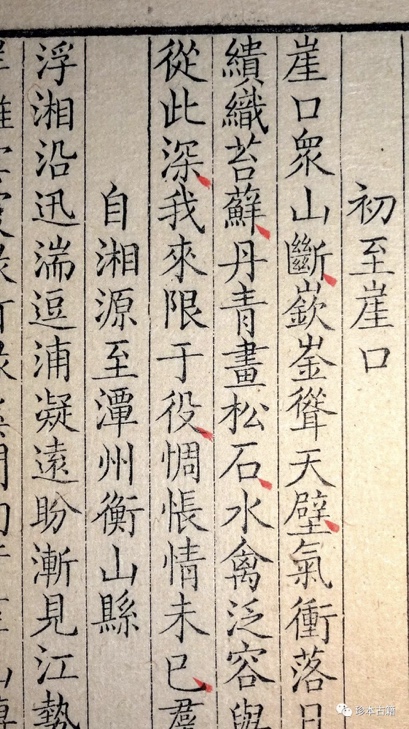 初至崖口
崖口衆山斷嶔崟聳天壁氣衝落日
繢織苔蘚丹青畫松石水禽泛容與
從此深我來限于役惆悵情未已羣
自湘源至潭州衡山縣
浮湘沿迅湍逗浦凝遠盼漸見江勢
珍本古籍